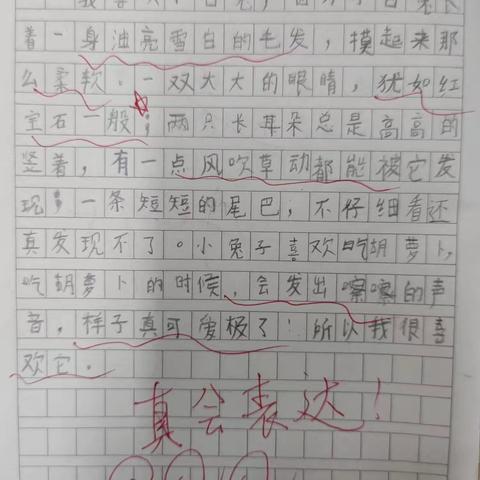 着一身油亮雪白的毛发，摸起来那
么柔软.一双大大的眼睛，犹如红
宝石一般；两只长耳朵总是高高的
竖着，有一点风吹草动都能被它发
现；一条短短的尾巴，不仔细看还
真发现不了。小兔子喜欢吃胡萝卜，
吃胡萝卜的时候，会发出嚓嚓的声
音，样子真可爱极了！所以我很喜
欢它.
真会表达！